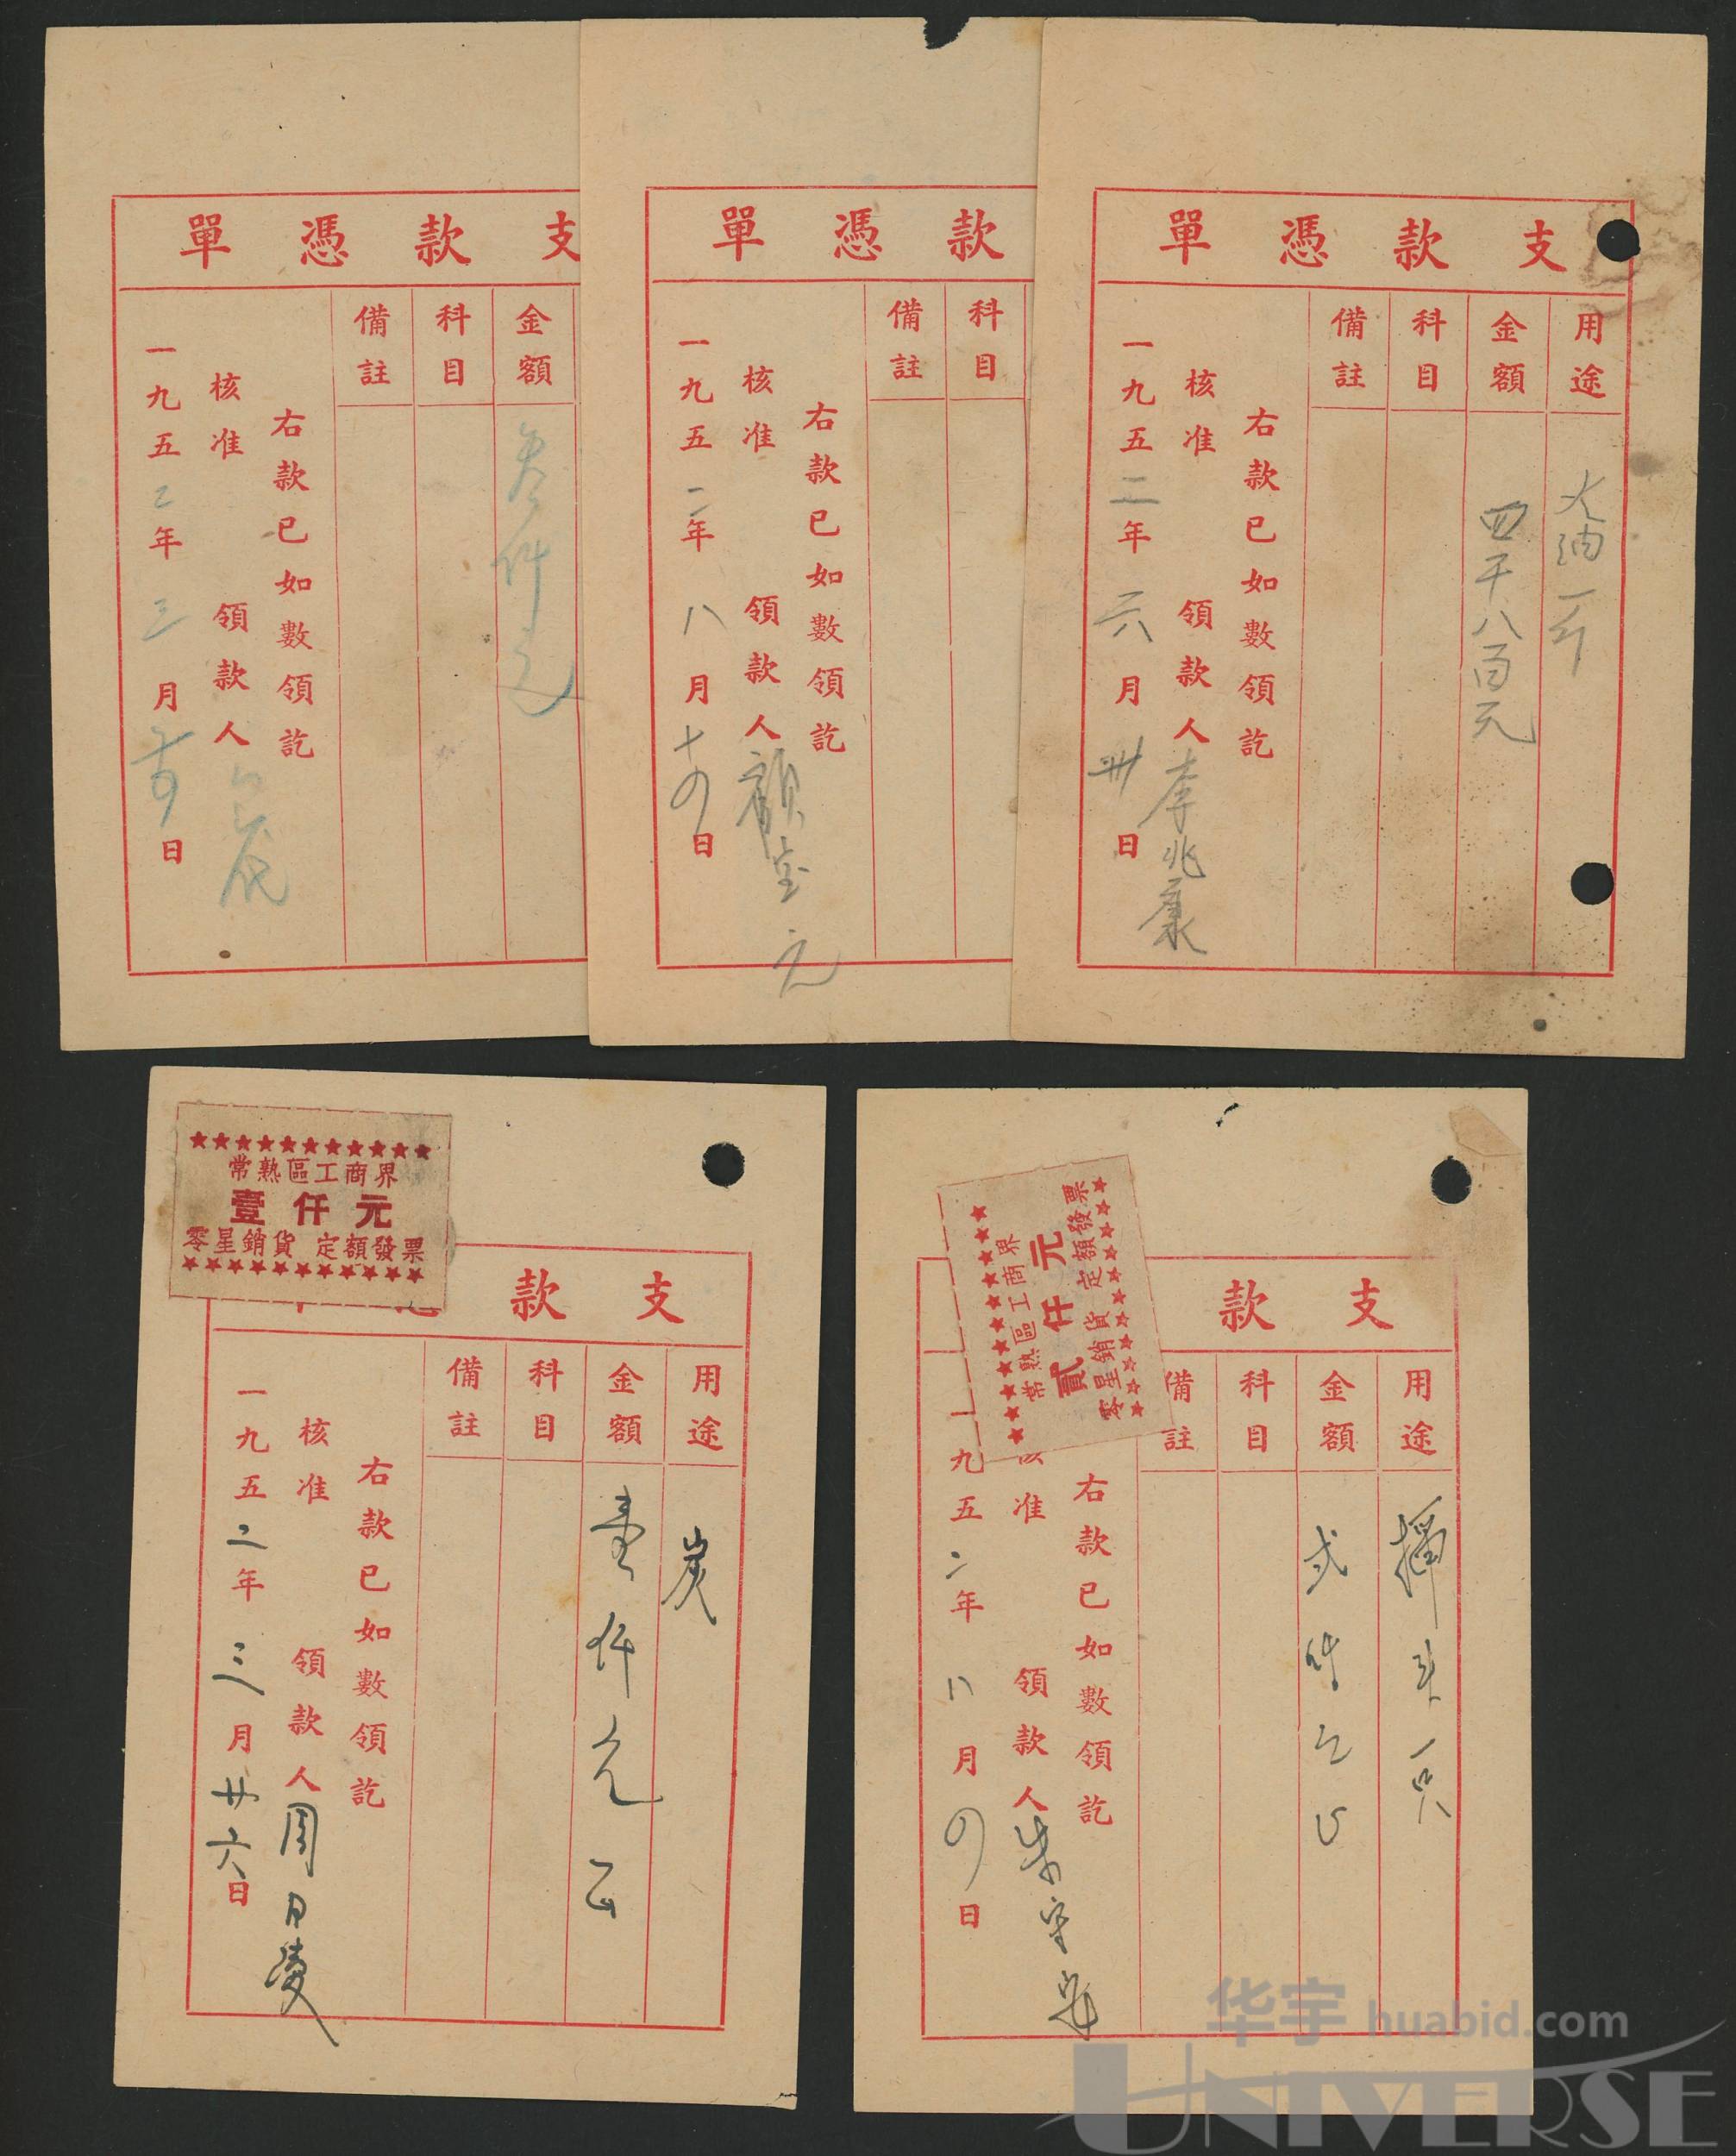 支款憑單
金額
科目
備註
叁仟元
右款已如數領訖
核准
領款人
一九五二年三月
日
款憑單
科目
備註
右款已如數領訖
核准
領款人
一九五二年八月十四日
支款憑單
用途
金額
科目
備註
火油一斤
四千八百元
右款已如數領訖
核准
領款人李兆康
一九五二年六月卅日
常熟區工商界
壹仟元
零星銷貨 定額發票
支款
用途
金額
科目
備註
炭
壹仟元正
右款已如數領訖
核准
領款人周日
一九五二年三月廿六日
常熟區工商界
貳仟元
零星銷貨 定額發票
支款
用途
金額
科目
備註
一只
弍仟元正
右款已如數領訖
准
領款人朱
一九五二年八月四日
华宇 huabid.com
UNIVERSE